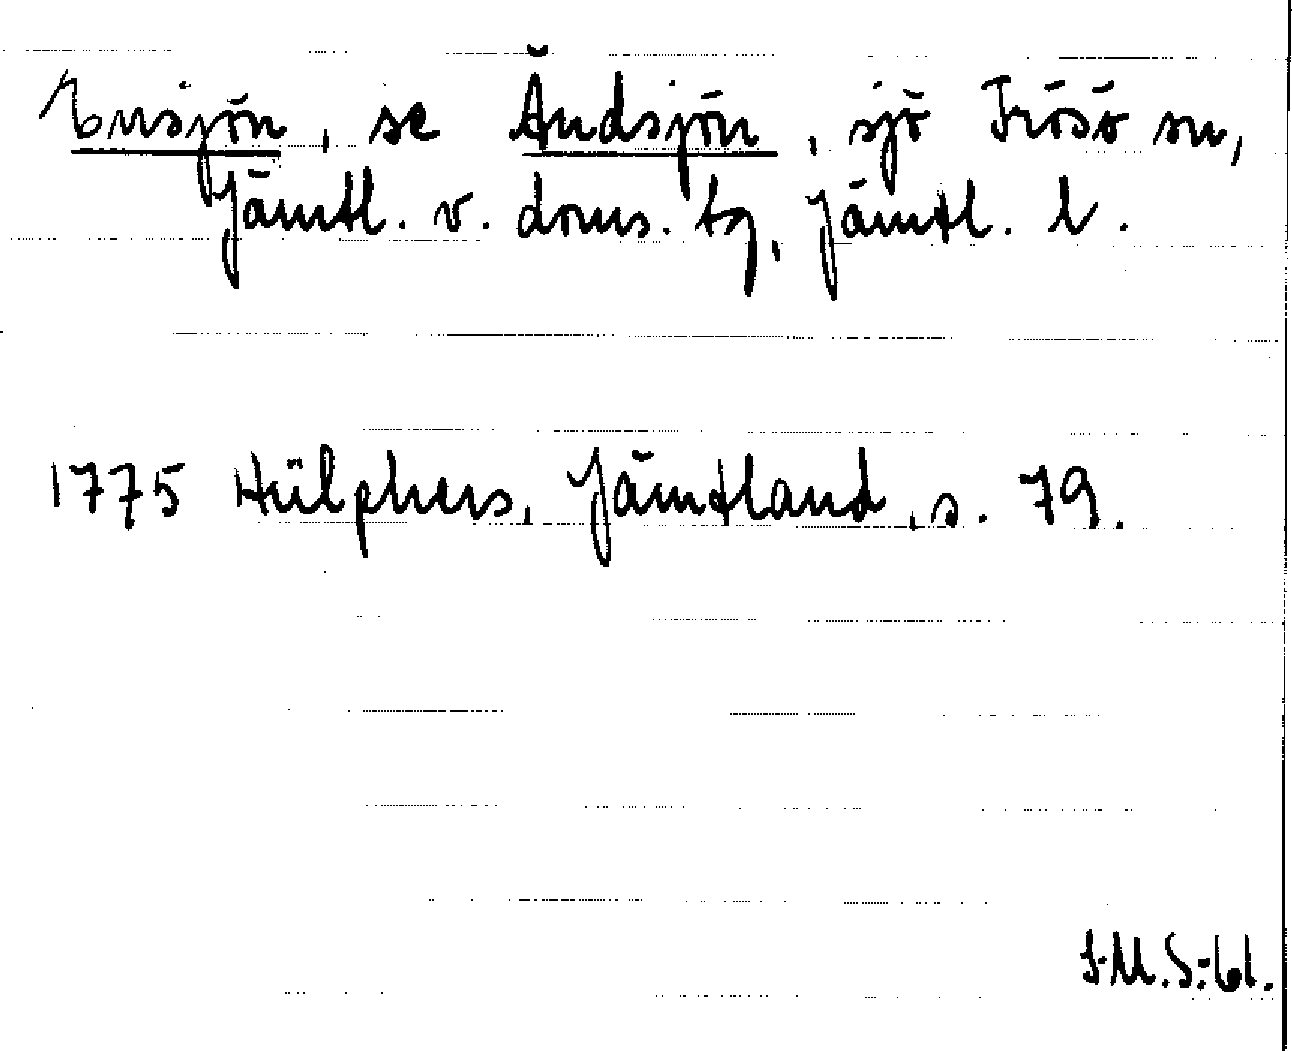 Ensjön, se Ändsjön, sjö Frösö sn,
Jämtl. v. doms. tg, Jämtl. l.
1775 Hülphers, Jämtland, s. 79.
I.M.S.-61.